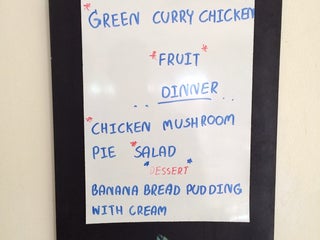 *GREEN CURRY CHICKEN
*FRUIT*
DINNER
*CHICKEN MUSHROOM
PIE *SALAD
*DESSERT*
BANANA BREAD PUDDING
WITH CREAM